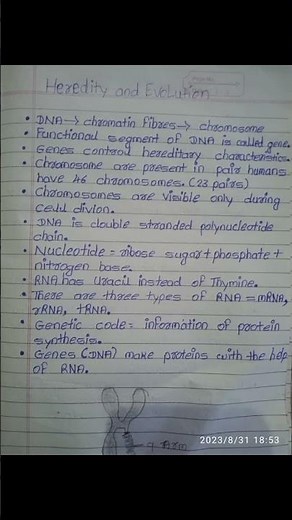 Heredity and Evolution
• DNA → chromatin fibres → chromosome
• Functional segment of DNA is called gene.
• Genes control hereditary characteristics.
• Chromosome are present in pair humans
have 46 chromosomes. (23 pairs)
• Chromosomes are visible only during
cell divion.
• DNA is double stranded polynucleotide
chain.
• Nucleotide = ribose sugar + phosphate +
nitrogen base.
• RNA has Uracil instead of Thymine.
• There are three types of RNA = mRNA,
rRNA, tRNA.
• Genetic code = information of protein
synthesis.
• Genes (DNA) make proteins with the help
of RNA.
q arm
2023/8/31 18:53